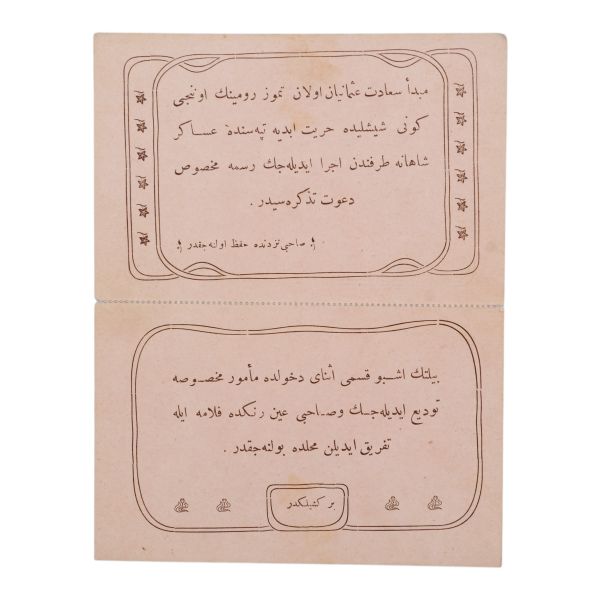 مبدأ سعادت عثمانیان اولان تموز رومینك اوننجی
كونی شیشلیده حریت ابدیه تپه‌سنده عساكر
شاهانه طرفندن اجرا ایدیله‌جك رسمه مخصوص
دعوت تذكره‌سیدر .
صاحبی نزدنده حفظ اولنه‌جقدر
بیلتك اشبو قسمی اثنای دخولده مأمور مخصوصه
تودیع ایدیله‌جك وصاحبی عین رنكده فلامه ایله
تفریق ایدیلن محلده بولنه‌جقدر .
بر كشیلكدر